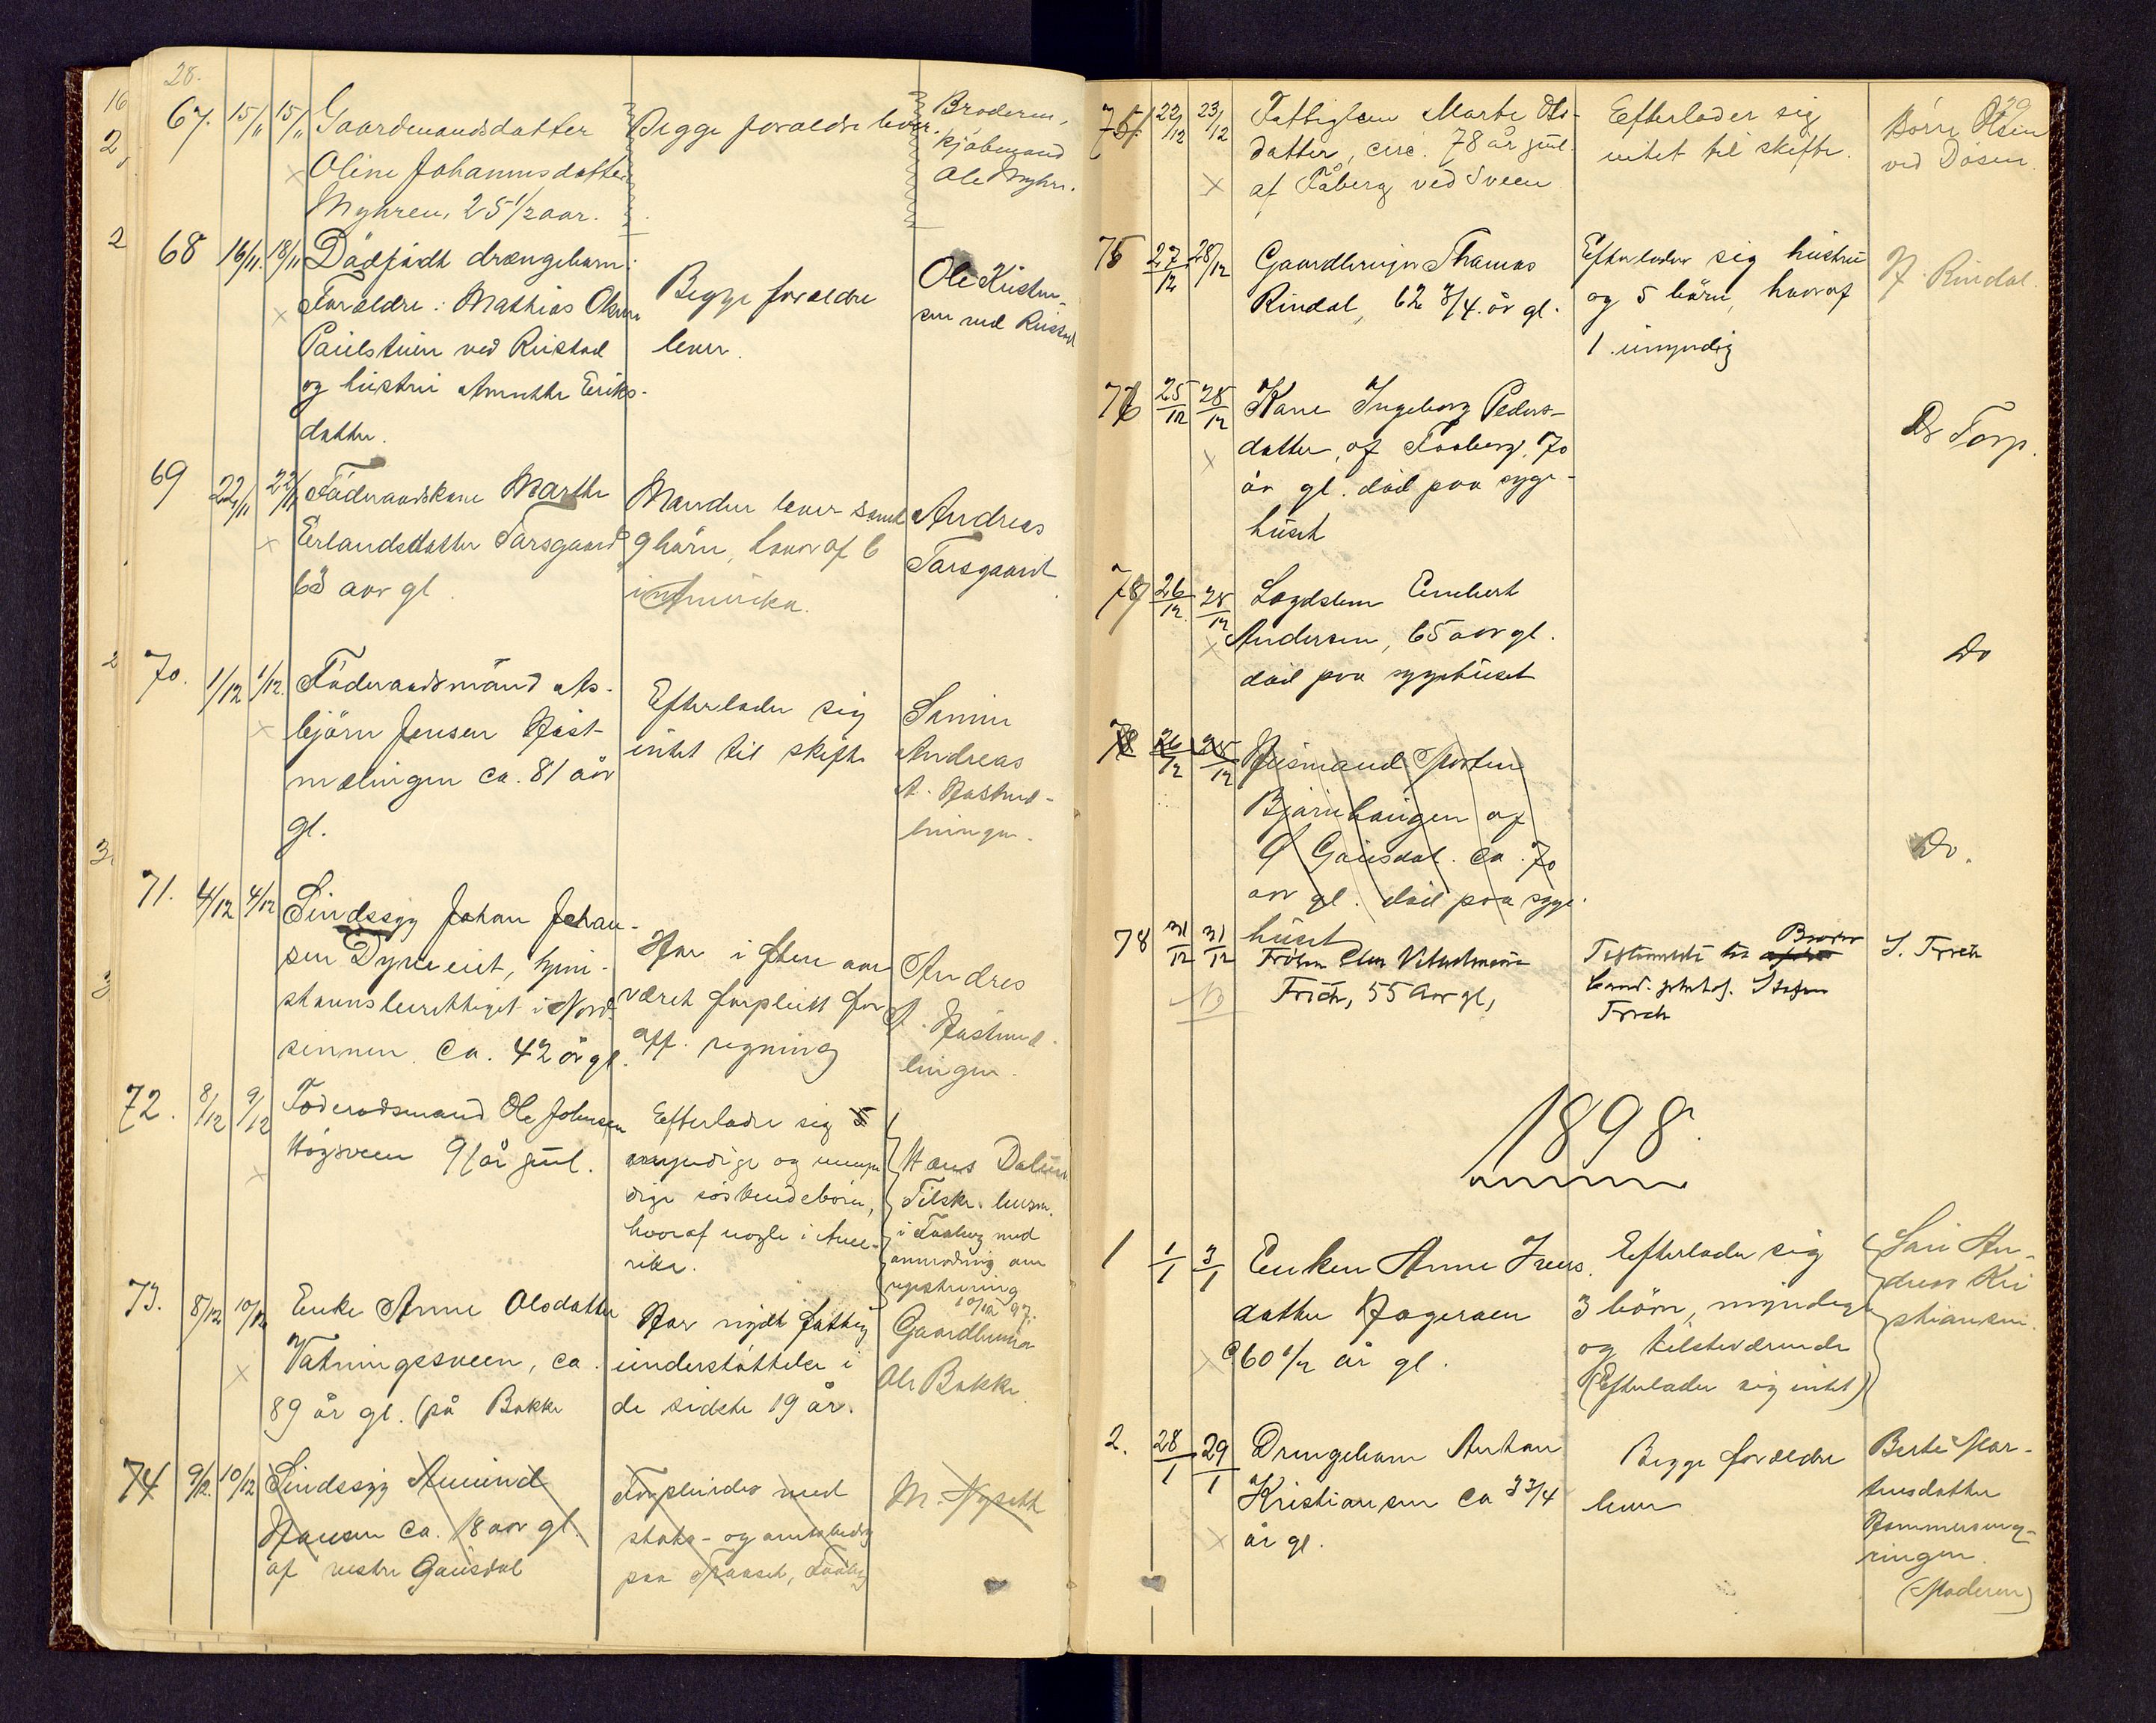 28.
67. 15/11 15/11 Gaardmandsdatter
Oline Johannesdatter
Myhren, 25 1/2 aar.
Begge forældre lever.
Broderen,
kjöbmand
Ole Myhre.
68 16/11. 18/11 Dödfödt drængebarn:
Forældre: Mathias Olsen
ved Rustad
og hustru Eriks-
datter.
Begge forældre
lever.
Ole Kristen-
sen ved Rustad
69 22/11 22/11 Föderaadskone Marthe
Erlandsdatter Torsgaard
aar gl.
Manden lever samt
9 börn, hvoraf 6
i Amerika.
Andreas
Torsgaard
70. 1/12 1/12. Föderaadsmand As-
björn Jensen Hast-
mælingen ca. 81 aar
gl.
Efterlader sig
intet til skifte
Sönnen
Andreas
A. Hastmæ-
lingen.
71. 4/12 4/12 Sindssyg Johan Johan-
sen Dyreeiet, hjem-
stavnsberettiget i Nord-
sinnen. Ca. 42 år gl.
Har i flere aar
været forpleiet for
off. regning
Andres
A. Hastmæ-
lingen.
72. 8/12 9/12 Föderadsmand Ole Johnsen
Högsveen 91 år gml.
Efterlader sig 5
myndige og umyn
dige söskendebörn,
hvoraf nogle i Ame-
rika.
Hans Dalum
Tilskr. lensm.
i Faaberg med
anmodning om
registrering
10/12 97.
73. 8/12 10/12 Enke Anne Olsdatter
Vatningssveen, ca.
89 år gl. (på Bakke
Har nydt fattig
understöttelse i
de sidste 19 år.
Gaardbruger
Ole Bakke
74 9/12. 10/12 Sindssyg Amund
Hansen ca. 18 aar gl.
af vestre Gausdal
Forpleiedes med
stats- og amtsbidrag
paa Faaberg
M. Nysett
29
75. 22/12 23/12 Fattiglem Marte Ols-
datter, circ. 78 år gml.
af Fåberg ved Sveen
Efterlader sig
intet til skifte.
Börre Olsen
ved Dösen
76 27/12 28/12 Gaardbruger Thomas
Rindal, 62 3/4 år gl.
Efterlader sig hustru
og 5 börn, hvoraf
1 umyndig
H. Rindal.
77 25/12 28/12 Kone Ingeborg Peders-
datter, af Faaberg, 70
år gl. död paa syge-
huset
Dr Torp.
78 26/12 28/12 Lægdslem Embert
Andersen, 65 aar gl.
död paa sygehuset
Do
78 26/12 28/12 Husmand Morten
Björnhaugen af
Ö Gausdal. ca. 70
aar gl. död paa syge-
huset
Do.
78 31/12 31/12 Fröken
Frich, 55 Aar gl,
Broder
Frich
S. Frich
1898.
1 1/1 3/1 Enken Anne Jens
datter Hageraen
60 1/2 år gl.
Efterlader sig
3 börn, myndige
og tilstedværende
(Efterlader sig intet)
An-
dreas Kri
stiansen.
2. 28/1 29/1 Drengebarn Anton
Kristiansen ca 3 3/4
år gl.
Begge forældre
lever
Berte Mar-
tinsdatter
Hammerseng-
ringen.
(Moderen)